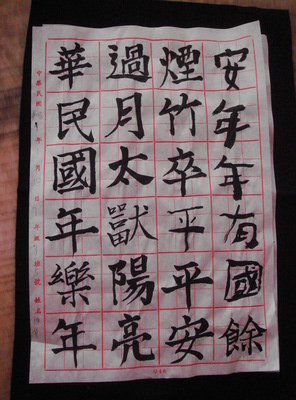 安年年有國餘
煙竹卒平平安
過月太獸陽亮
華民國年樂年
中華民國 年 月 日 年級 班 號 姓名